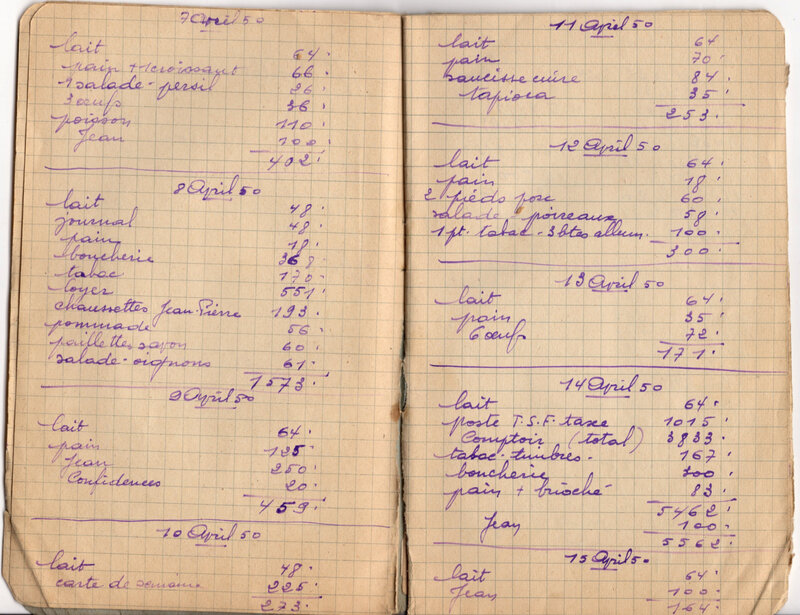 7 April 50
lait 64.
pain + 1 croissant 66
1 salade - persil 26.
3 œufs 36
poisson 110.
Jean 100.
402.
8 April 50
lait 48.
journal 48.
pain 18.
boucherie 368.
tabac 170.
loyer 551.
chaussettes Jean-Pierre 193.
pommade 56
paillettes savon 60
salade - oignons 61.
1573.
9 April 50
lait 64.
pain 125.
Jean 250.
Confidences 20.
459.
10 April 50
lait 48.
carte de semaine 225.
273.
11 April 50
lait 64
pain 70.
saucisse cuire 84.
tapioca 35.
253.
12 April 50
lait 64.
pain 18.
2 piéds porc 60.
salade - poireaux 58.
1 pt. tabac - 3 btes allum. 100.
300.
13 April 50
lait 64.
pain 35.
6 œufs 72.
171.
14 April 50
lait 64.
poste T.S.F. taxe 1015.
Comptoir (total) 3833.
tabac - timbres - 167.
boucherie 300.
pain + brioché 83.
5462.
Jean 100.
5562.
15 April 50
lait 64.
Jean 100.
164.